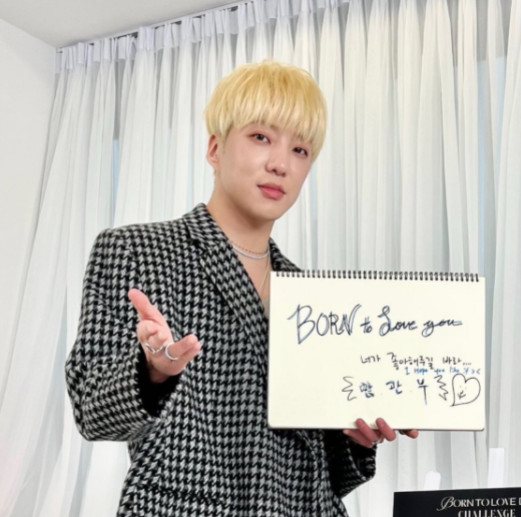 BORN to Love you
너가 좋아해주길 바라....
I Hope you like it ><
맘.관.부
BORN TO LOVE
CHALLENGE